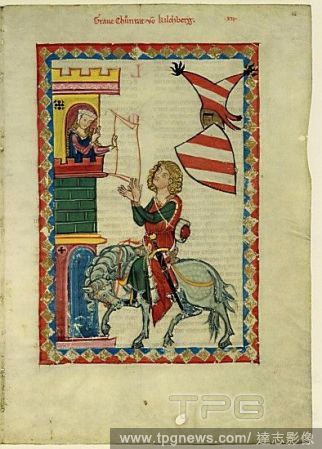 Grave Chůnrat võ kilchberg. xiij.
TPG
www.tpgnews.com / 達志影像